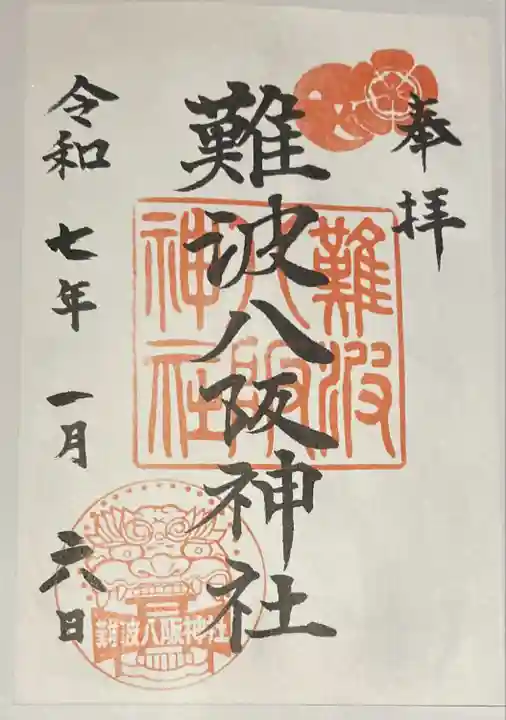 奉拝
難波八阪神社
難波八阪神社
令和七年一月六日
難波八阪神社